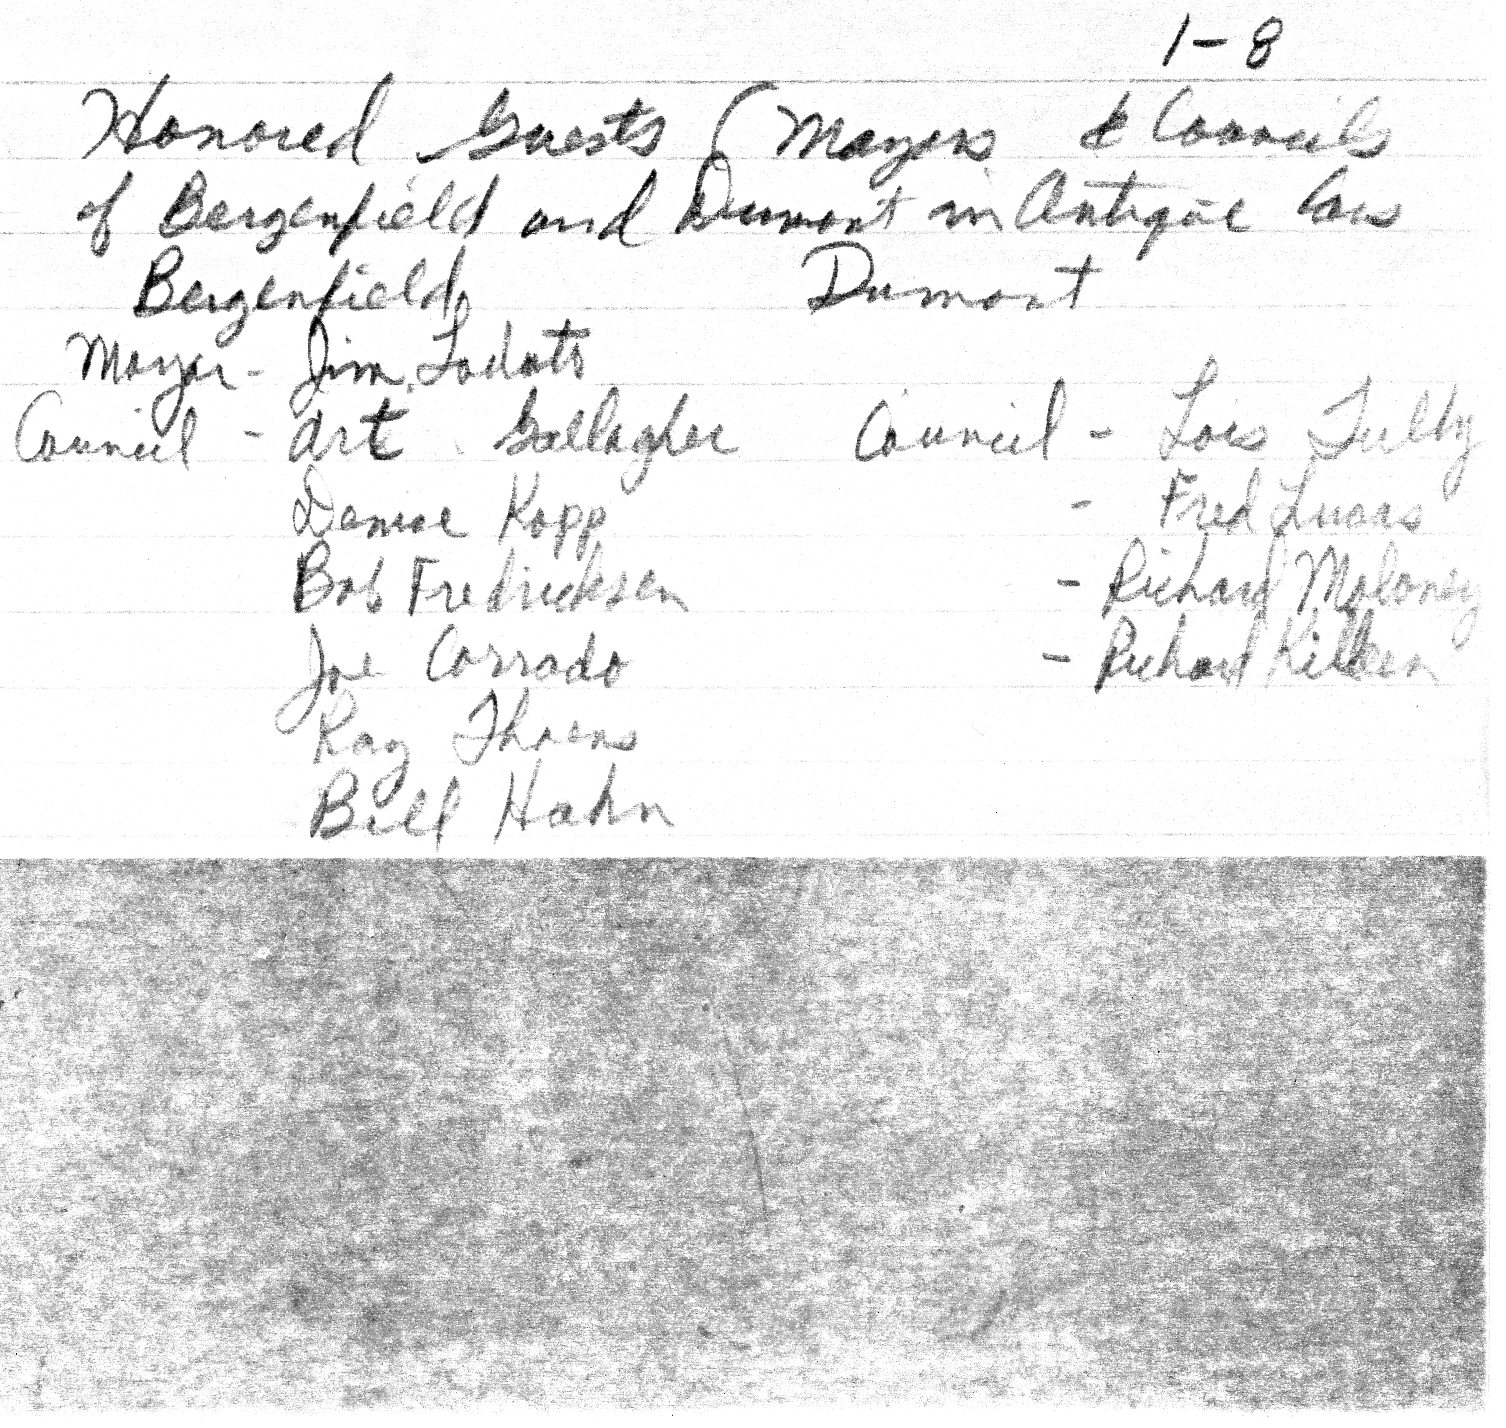 1-8
Honored Guests (Mayors & Councils
of Bergenfield and Dumont in Antique Cars
Bergenfield Dumont
Mayor - Jim Lodato
Council - Art Gallagher Council - Lois Tully
Denise Kopp - Fred Lucas
Bob Fredricksen - Richard Moloney
Joe Corrado - Richard Killeen
Ray Thoens
Bill Hahn